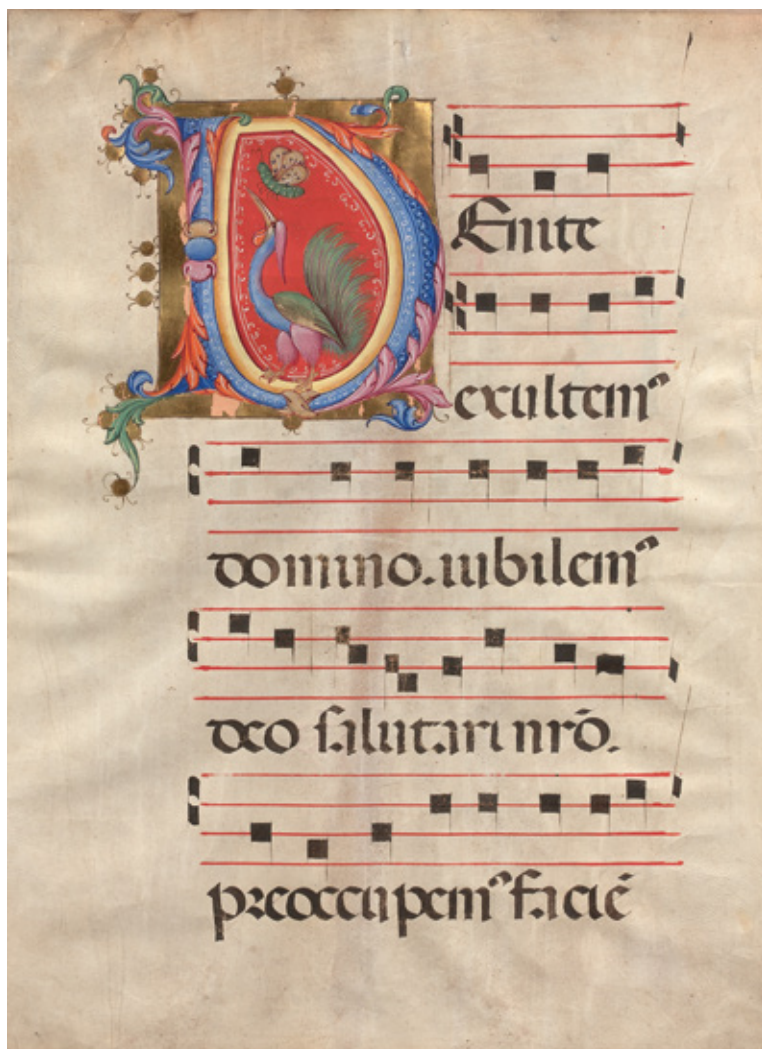 VEnite
exultem⁹
domino. iubilem⁹
deo salutari nr̄o.
preoccupem⁹ faciē